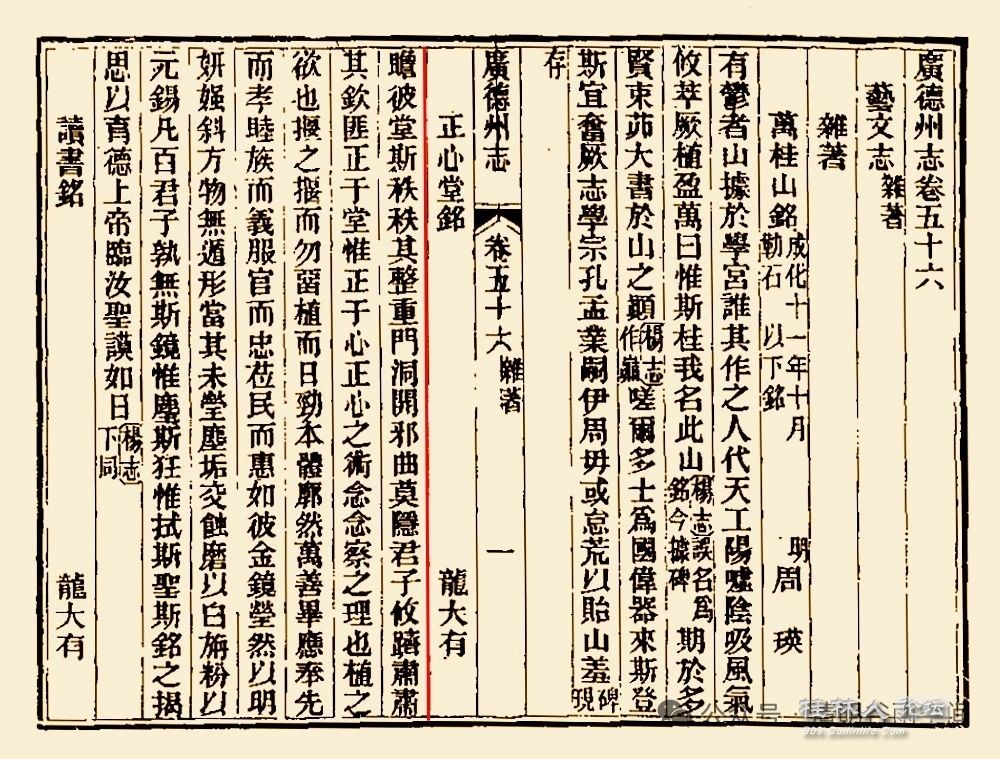 廣德州志卷五十六
藝文志雜著
雜著
萬桂山銘成化十一年十月勒石 以下銘 明周 瑛
有鬱者山據於學宮誰其作之人代天工陽噓陰吸風氣
攸萃厥植盈萬曰惟斯桂我名此山楊志誤名爲銘今據碑期於多
賢束茆大書於山之顚楊志作巔嗟爾多士爲國偉器來斯登
斯宜奮厥志學宗孔孟業嗣伊周毋或怠荒以貽山羞碑現
存
廣德州志 卷五十六 雜著 一
正心堂銘 龍大有
瞻彼堂斯秩秩其整重門洞開邪曲莫隱君子攸躋肅肅
其欽匪正于堂惟正于心正心之術念念察之理也植之
欲也揠之揠而勿留植而日勁本體廓然萬善畢應奉先
而孝睦族而義服官而忠莅民而惠如彼金鏡瑩然以明
妍媸斜方物無遁形當其未瑩塵垢交蝕磨以白旃粉以
元錫凡百君子孰無斯鏡惟塵斯狂惟拭斯聖斯銘之揭
思以育德上帝臨汝聖謨如日楊志下同
讀書銘 龍大有
公众号
桂林人论坛
bbs.Guilinlife.com